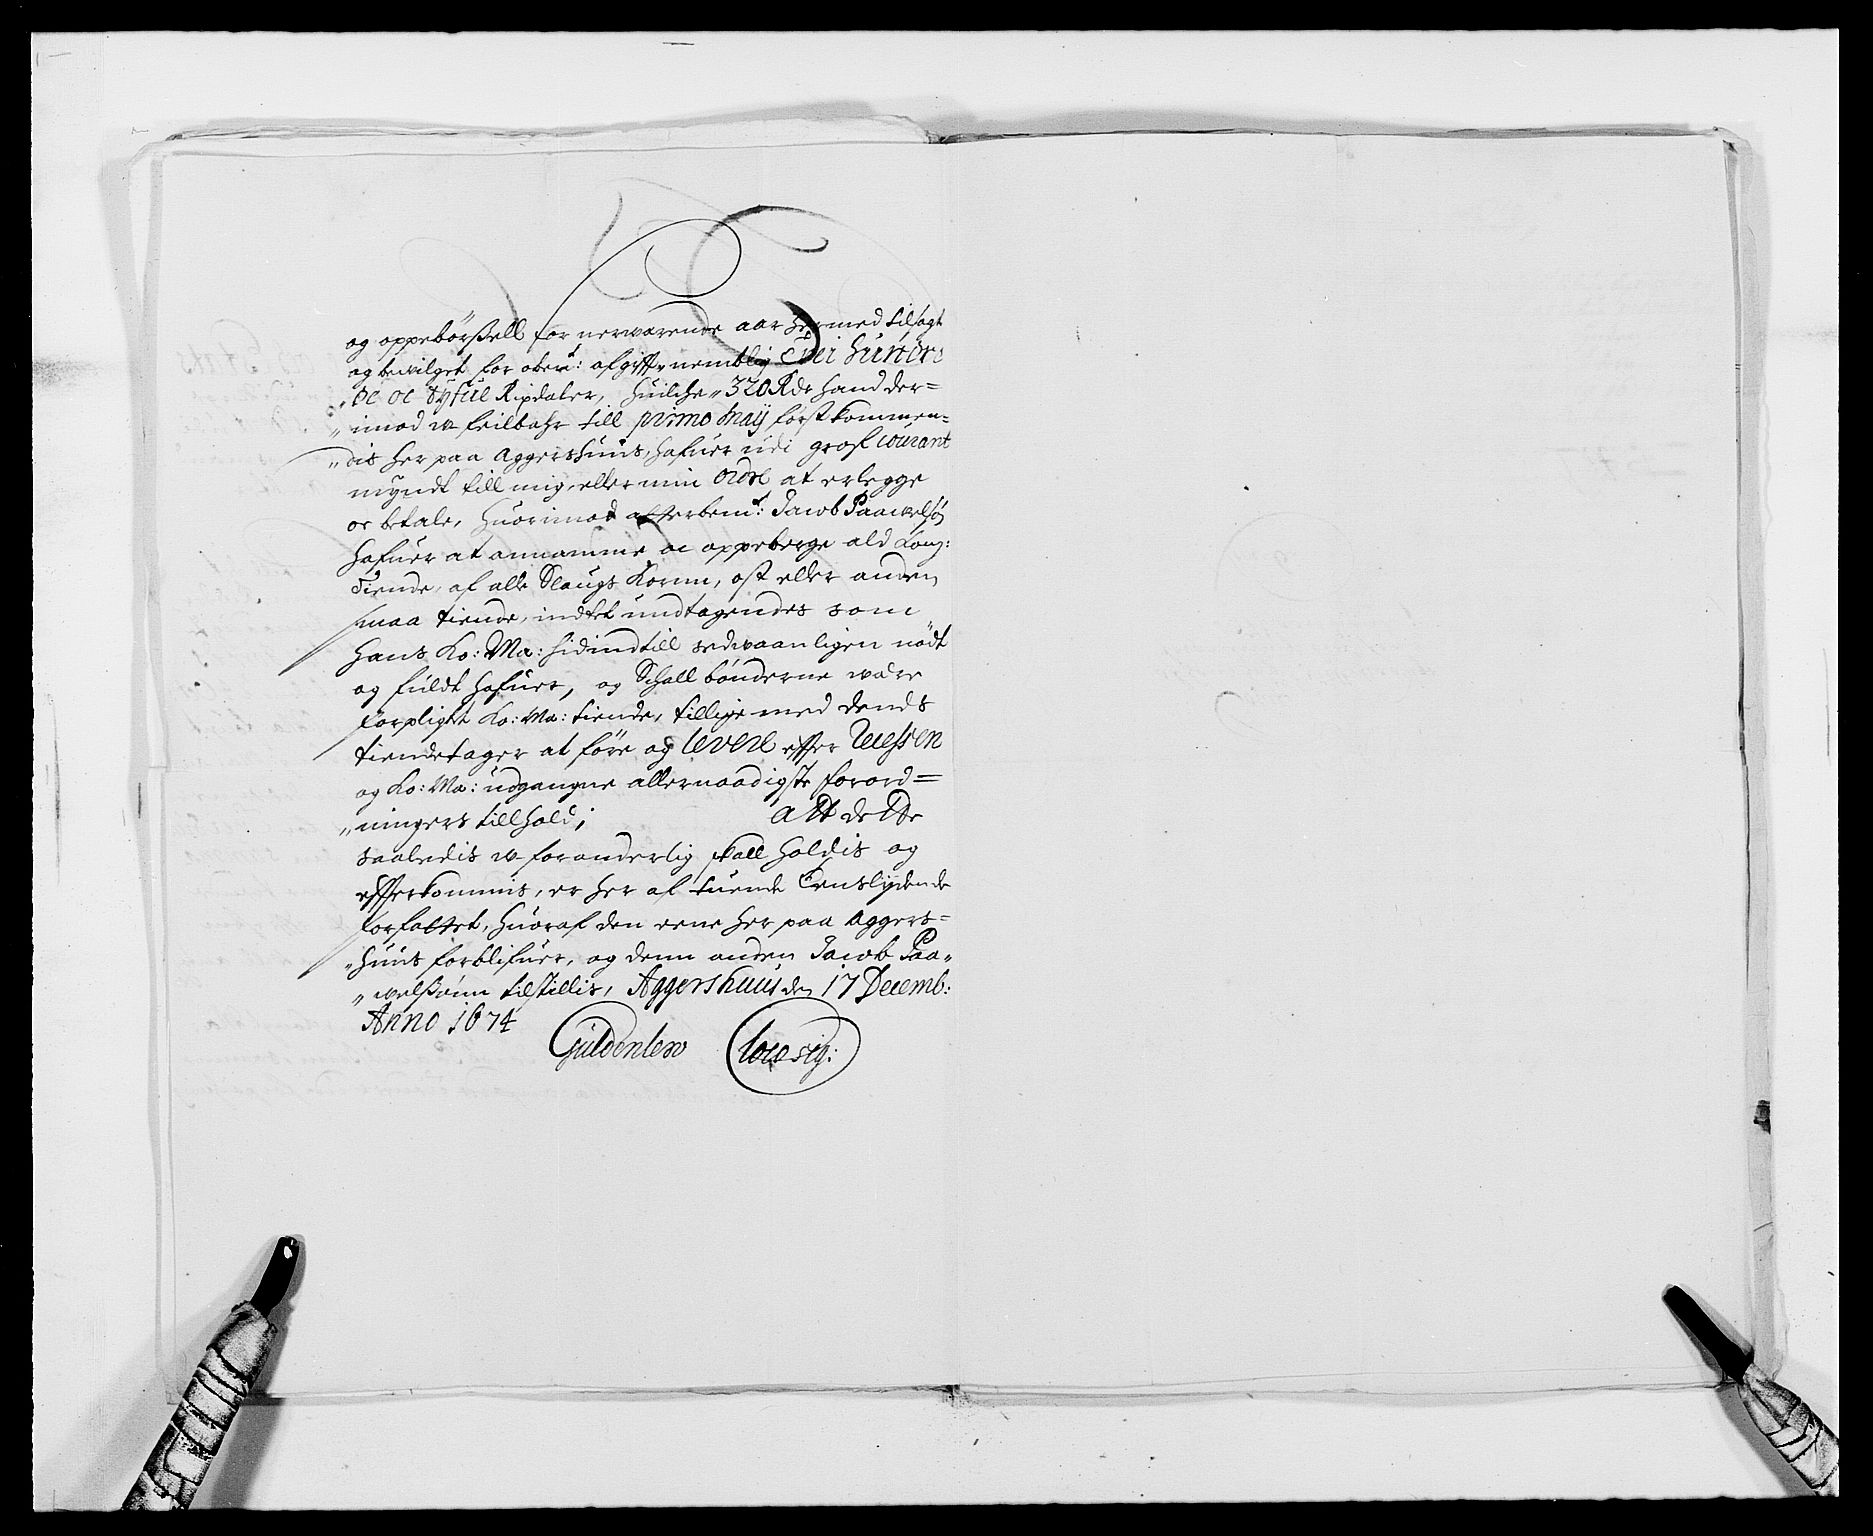 og oppebørßell for nerwærende aar hermed tilsagt
og bewilget for aften: afgifft nemblig Trei hundre
oc oc tyfue Rixdaler, huilche 320 Rdr hand der=
imod u feilbahr till primo Maÿ først kommen=
dis her paa Aggershuus, hafuer udi grof Courant
myndt till mig, eller min ordre at erlegge
oc betale, huorimod afterbem:te Jacob Paawelsøn
hafuer at annamme oc oppeberge ald Kong:
Tiende, af alle Slaugs Kornn, ost eller anden
smaa tiende, indtet undtagendes som
Hans Ko: Ma: hidindtill sedwaanligen nødt
og fuldt hafuer, og Schall bønderne være
forpligtt Ko: Ma: tiende, tillige med dends
tiendetager at føre og levere effter Recessen
og Ko: Ma: udgangne allernaadigste forord=
ningers tillhold; Att dette
saaledis u foranderlig skall holdis og
effterkommis, er her af tuende Eenslydende
forfattet, huoraf den eene her paa Aggers=
huus forblifuer, og denn anden Jacob Paa=
welßønn tilstillis, Aggershuus den 17 Decemb:
Anno 1674
Güldenlew Loco sig: